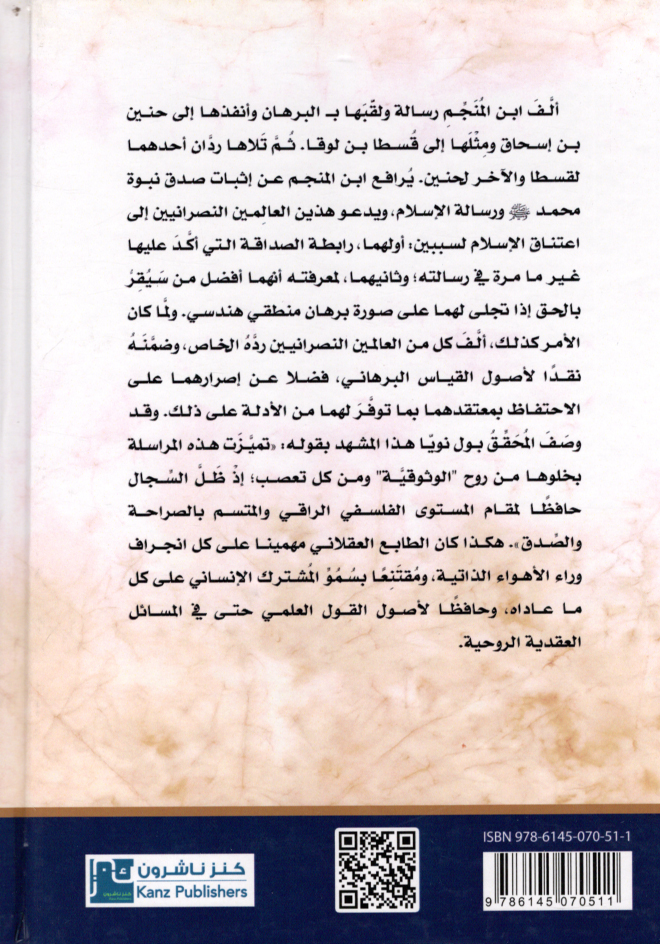 ألَّفَ ابن المُنَجِّم رسالة ولقَّبَها بـ البرهان وأنفذها إلى حنين
بن إسحاق ومِثْلَها إلى قُسطا بن لوقا. ثُمَّ تَلاها ردَّان أحدهما
لقسطا والآخر لحنين. يُرافع ابن المنجم عن إثبات صدق نبوة
محمد ﷺ ورسالة الإسلام، ويدعو هذين العالِمين النصرانيين إلى
اعتناق الإسلام لسببين: أولهما، رابطة الصداقة التي أكَّدَ عليها
غير ما مرة في رسالته؛ وثانيهما، لمعرفته أنهما أفضل من سَيُقِرُّ
بالحق إذا تجلى لهما على صورة برهان منطقي هندسي. ولمَّا كان
الأمر كذلك، ألَّفَ كل من العالمين النصرانيين ردَّهُ الخاص، وضمَّنَهُ
نقدًا لأصول القياس البرهاني، فضلا عن إصرارهما على
الاحتفاظ بمعتقدهما بما توفَّرَ لهما من الأدلة على ذلك. وقد
وصَفَ المُحَقِّقُ بول نويَا هذا المشهد بقوله: «تميَّزَت هذه المراسلة
بخلوها من روح "الوثوقيَّة" ومن كل تعصب؛ إذْ ظَلَّ السِّجال
حافظًا لمقام المستوى الفلسفي الراقي والمتسم بالصراحة
والصِّدق». هكذا كان الطابع العقلاني مهمينا على كل انجراف
وراء الأهواء الذاتية، ومُقتَنِعًا بسُمُوِّ المُشترك الإنساني على كل
ما عاداه، وحافظًا لأصول القول العلمي حتى في المسائل
العقدية الروحية.
ISBN 978-6145-070-51-1
كنز ناشرون
Kanz Publishers
كنز ناشرون
9 786145 070511